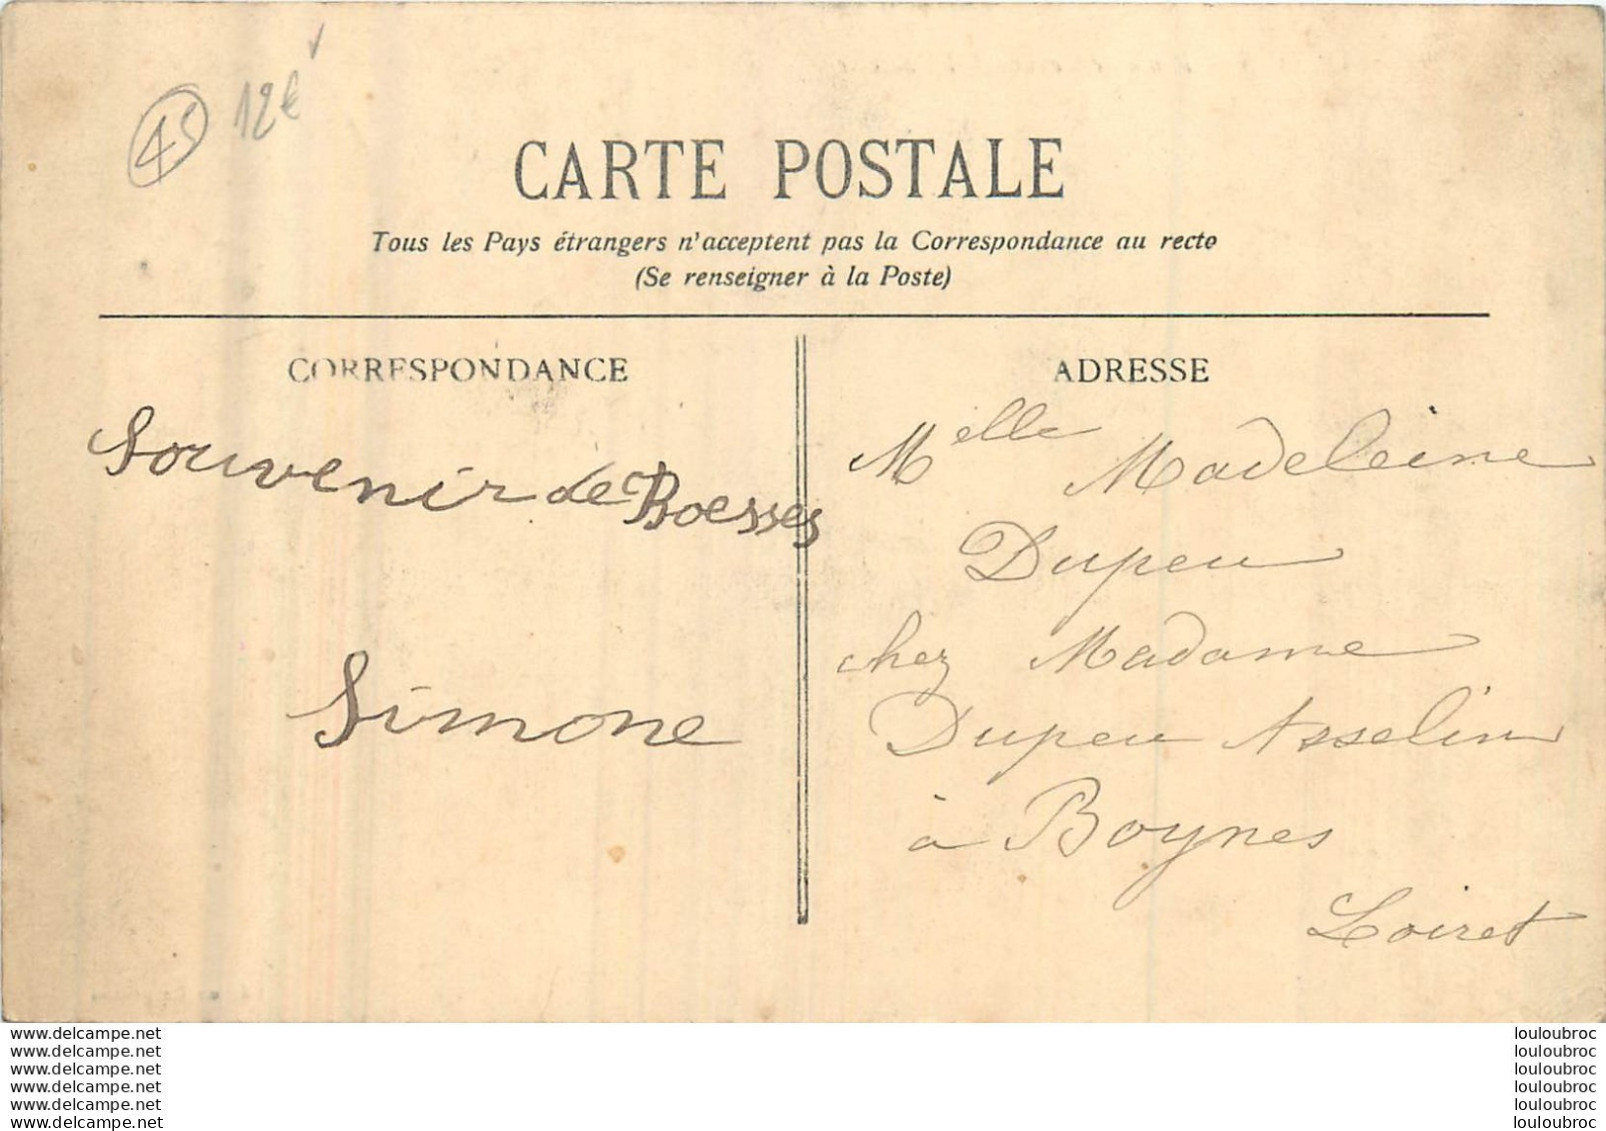 45
12€
CARTE POSTALE
Tous les Pays étrangers n'acceptent pas la Correspondance au recto
(Se renseigner à la Poste)
CORRESPONDANCE
Souvenir de Boesses
Simone
ADRESSE
Melle Madeleine
Dupeu
chez Madame
Dupeu Asselin
à Boynes
Loiret
www.delcampe.net
www.delcampe.net
www.delcampe.net
www.delcampe.net
www.delcampe.net
www.delcampe.net
louloubroc
louloubroc
louloubroc
louloubroc
louloubroc
louloubroc